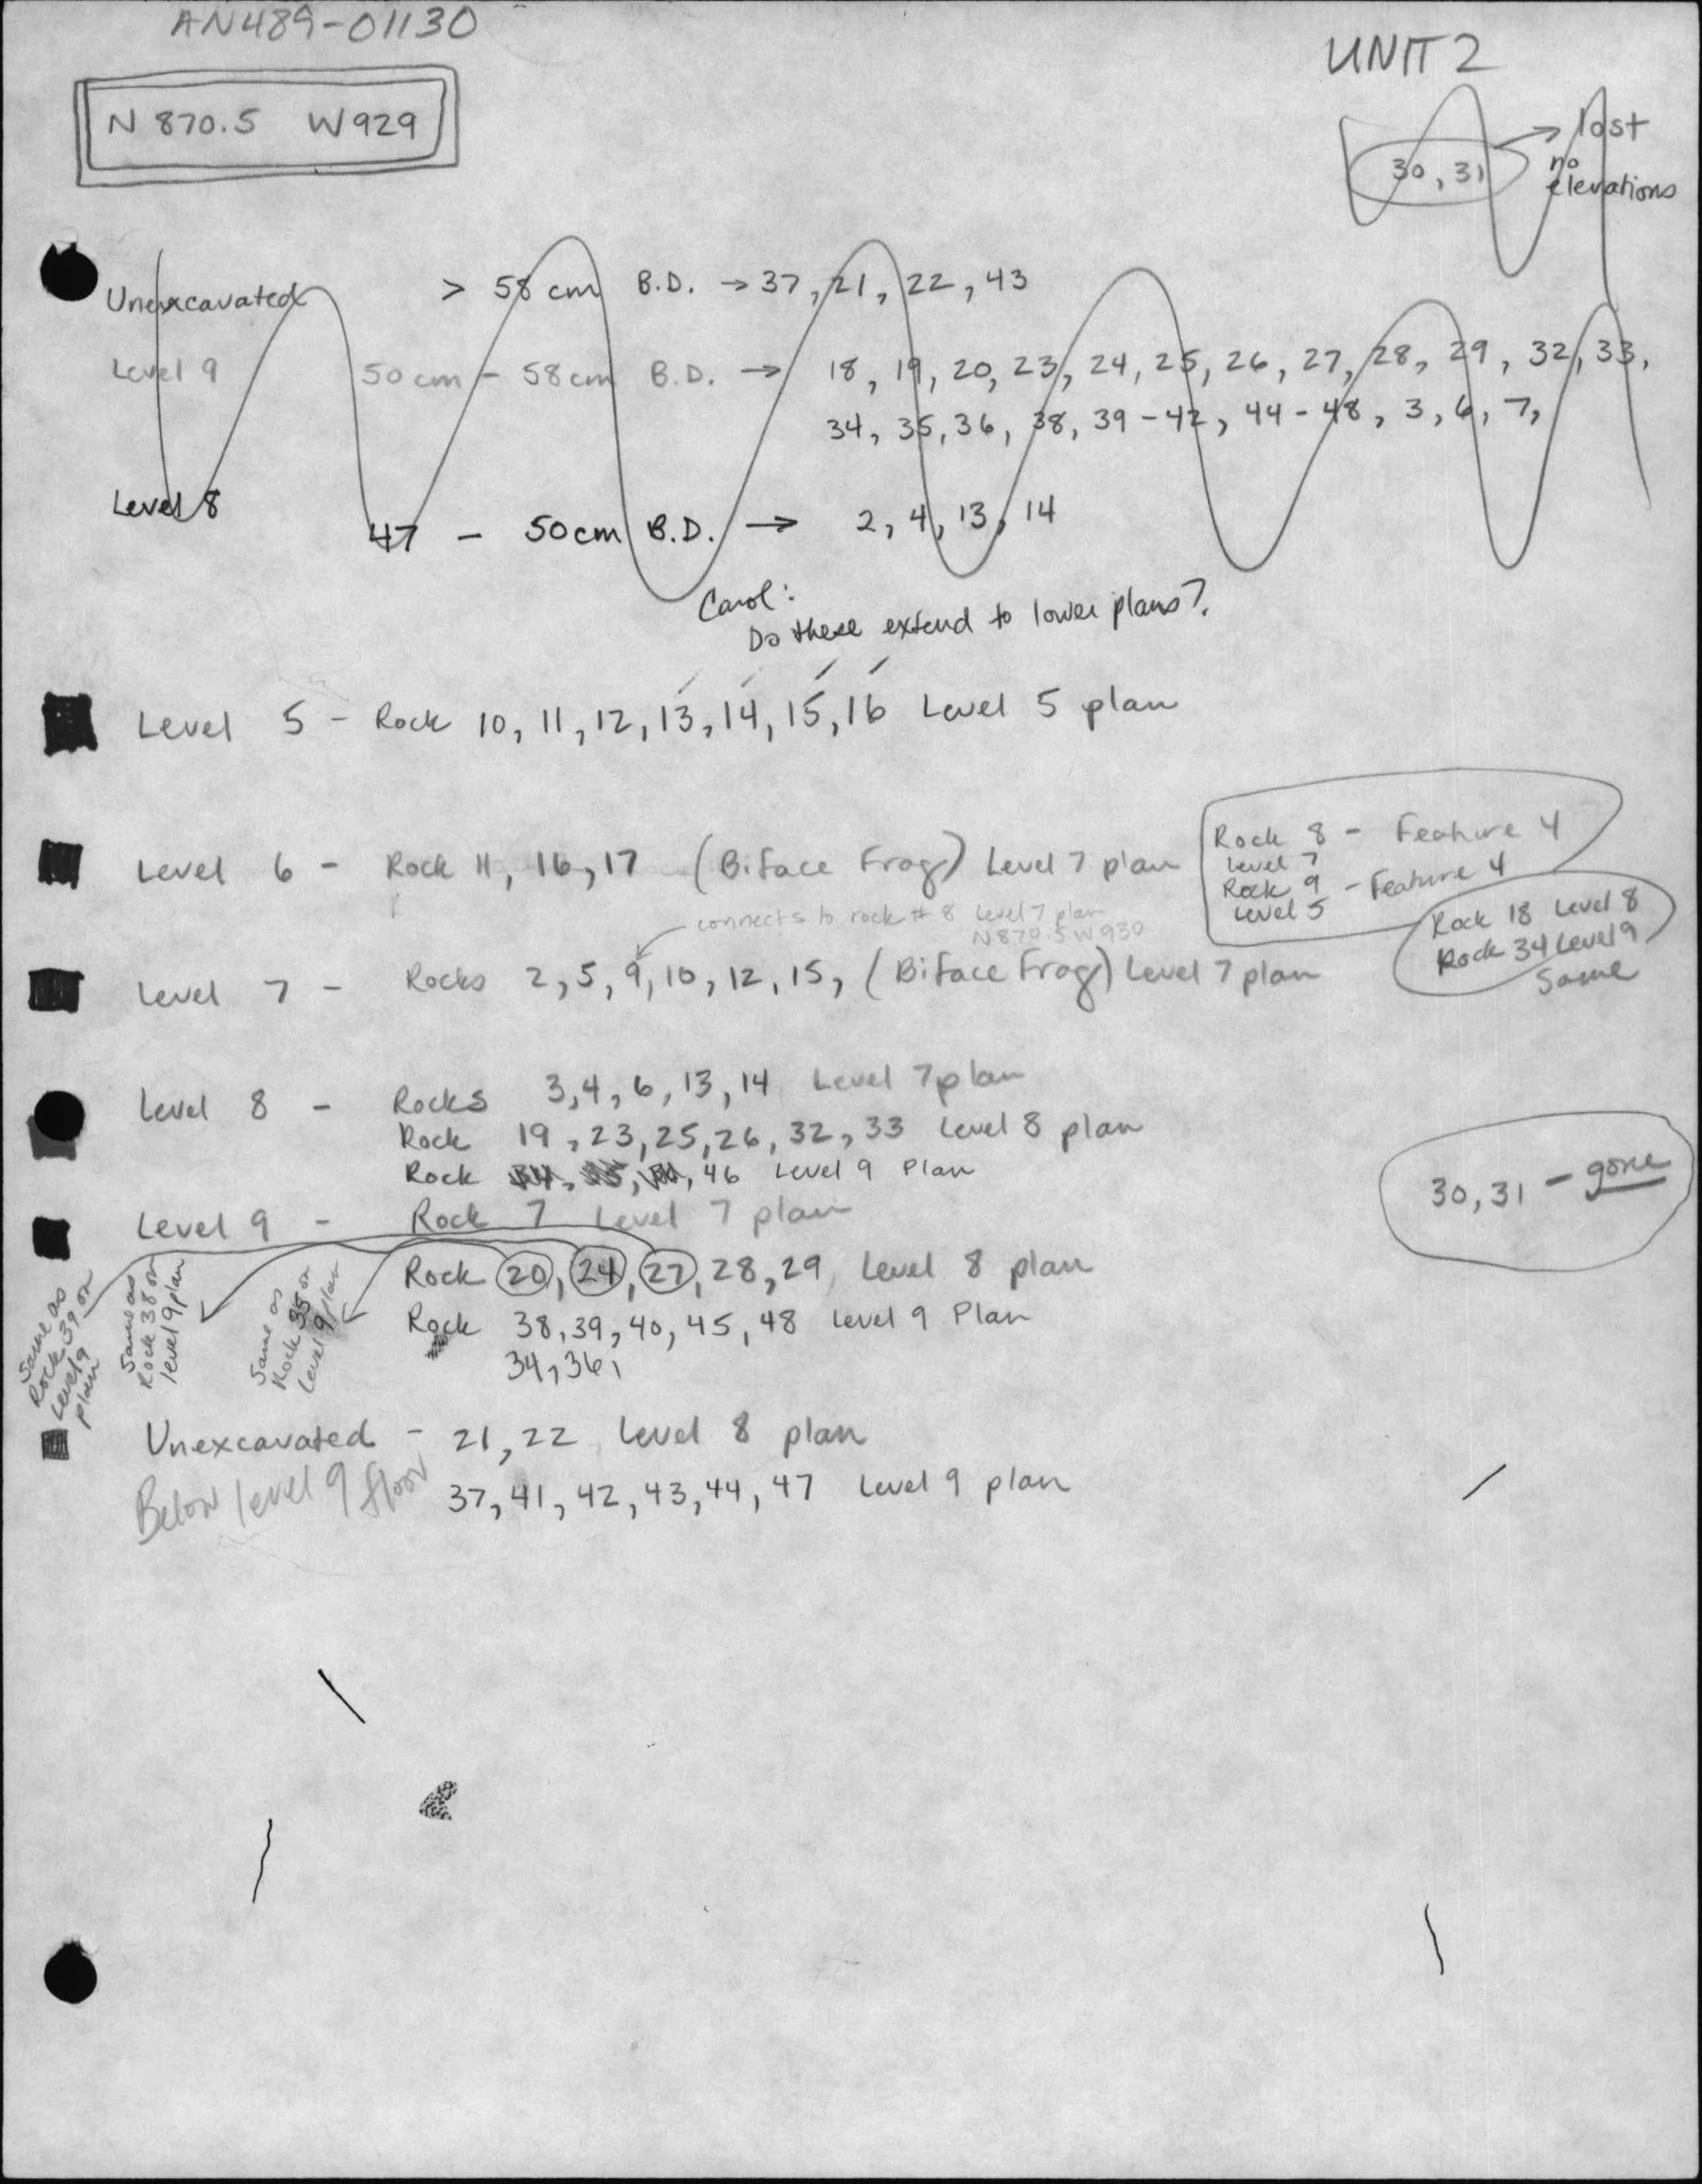 AN489-01130
UNIT 2
N 870.5 W929
30, 31 → lost
no
elevations
Unexcavated > 58 cm B.D. → 37, 21, 22, 43
Level 9 50 cm - 58 cm B.D. → 18, 19, 20, 23, 24, 25, 26, 27, 28, 29, 32, 33,
34, 35, 36, 38, 39-42, 44-48, 3, 6, 7,
Level 8 47 - 50cm B.D. → 2, 4, 13, 14
Carol:
Do these extend to lower plans?
Level 5 - Rock 10, 11, 12, 13, 14, 15, 16 Level 5 plan
Rock 8 - Feature 4
Level 7
Rock 9 - Feature 4
Level 5
Level 6 - Rock 11, 16, 17 (Biface Frag) Level 7 plan
Rock 18 Level 8
Rock 34 Level 9
Same
connects to rock # 8 Level 7 plan
N870.5 W930
Level 7 - Rocks 2, 5, 9, 10, 12, 15, (Biface Frag) Level 7 plan
Level 8 - Rocks 3, 4, 6, 13, 14 Level 7 plan
Rock 19, 23, 25, 26, 32, 33 Level 8 plan
Rock 46 Level 9 Plan
30, 31 - gone
Level 9 - Rock 7 Level 7 plan
Rock 20, 24, 27, 28, 29, Level 8 plan
Rock 38, 39, 40, 45, 48 Level 9 Plan
34, 36,
Same as
Rock 39 on
Level 9
plan
Same as
Rock 38 on
level 9 plan
Same as
Rock 35 on
Level 9 plan
Unexcavated - 21, 22 Level 8 plan
Below level 9 floor
37, 41, 42, 43, 44, 47 Level 9 plan